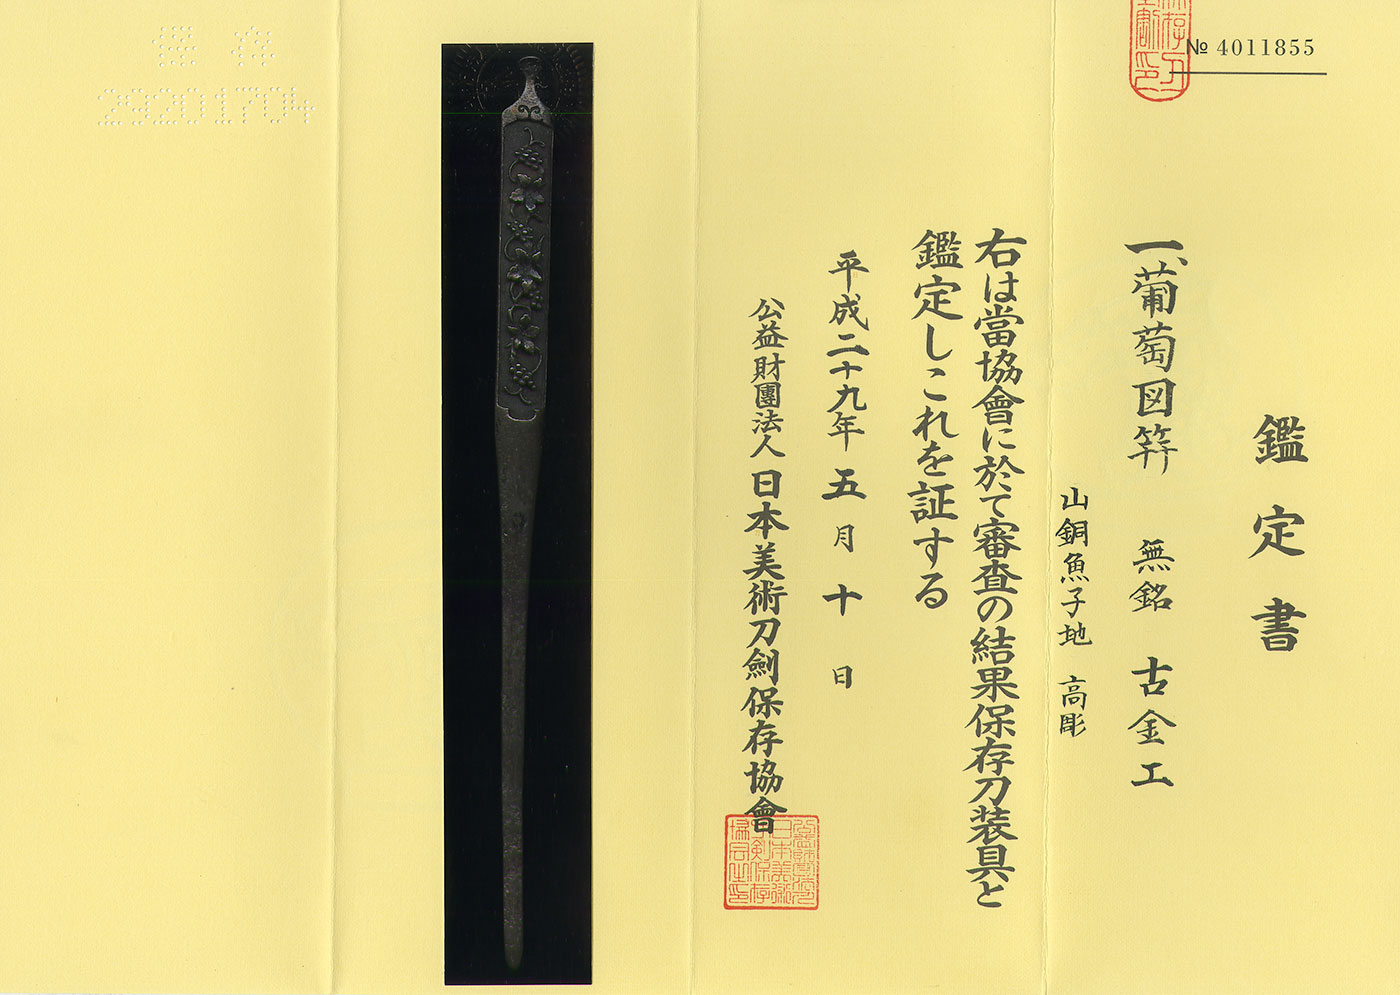 № 4011855
鑑定書
一、葡萄図笄 無銘 古金工
山銅魚子地 高彫
右は當協會に於て審査の結果保存刀装具と
鑑定しこれを証する
平成二十九年五月十日
公益財團法人 日本美術刀劍保存協會
保存
29201704